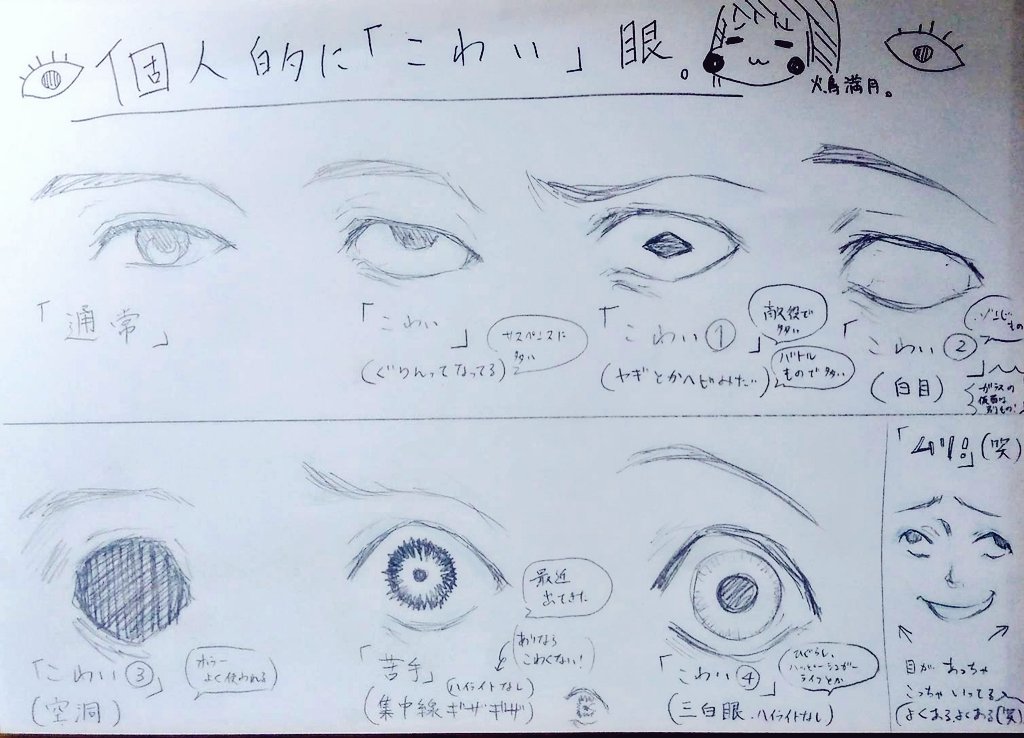 個人的に「こわい」眼。
火鳥満月。
「通常」
「こわい」
(ぐりんってなってる)
サスペンスに
多い
「こわい①」
(ヤギとかヘビみたい)
敵役で
多い
バトル
もので多い
「こわい②」
(白目)
ゾンビもの
ガラスの
仮面は
別もの!
「こわい③」
(空洞)
ホラー
よく使われる
「苦手」
(ハイライトなし)
(集中線ギザギザ)
最近
出てきた
ありなら
こわくない!
「こわい④」
(三白眼、ハイライトなし)
ひぐらし、
ハッピーシュガー
ライフとか
「ムリ!」(笑)
目があっちゃ
こっちゃいってる
(よくあるよくある(笑)